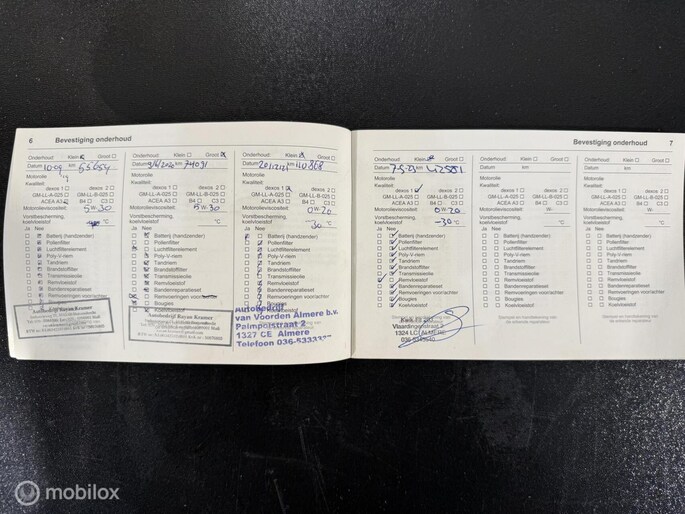 6 Bevestiging onderhoud
Onderhoud: Klein Groot
Datum 10-09 km 55654
Motorolie
Kwaliteit:
dexos 1 dexos 2
GM-LL-A-025 GM-LL-B-025
ACEA A3 B4 C3
Motorolieviscositeit: 5 W- 30
Vorstbescherming,
koelvloeistof: °C
Ja Nee
Batterij (handzender)
Pollenfilter
Luchtfilterelement
Poly-V-riem
Tandriem
Brandstoffilter
Transmissieolie
Remvloeistof
Bandenreparatieset
Remvoeringen voor/achter
Autobedrijf Royan Kramer
Onderhoud: Klein Groot
Datum km 74091
Motorolie
Kwaliteit:
dexos 1 dexos 2
GM-LL-A-025 GM-LL-B-025
ACEA A3 B4 C3
Motorolieviscositeit: 5 W- 30
Vorstbescherming,
koelvloeistof: °C
Ja Nee
Batterij (handzender)
Pollenfilter
Luchtfilterelement
Poly-V-riem
Tandriem
Brandstoffilter
Transmissieolie
Remvloeistof
Bandenreparatieset
Remvoeringen voor/achter
Bougies
Koelvloeistof
Autobedrijf Royan Kramer
Onderhoud: Klein Groot
Datum km
Motorolie
Kwaliteit:
dexos 1 dexos 2
GM-LL-A-025 GM-LL-B-025
ACEA A3 B4 C3
Motorolieviscositeit: 0 W- 20
Vorstbescherming,
koelvloeistof: -30 °C
Ja Nee
Batterij (handzender)
Pollenfilter
Luchtfilterelement
Poly-V-riem
Tandriem
Brandstoffilter
Transmissieolie
Remvloeistof
Bandenreparatieset
Remvoeringen voor/achter
Bougies
Koelvloeistof
Autobedrijf
van Voorden Almere b.v.
Palmpolstraat 2
1327 CE Almere
Telefoon 036-5333
Bevestiging onderhoud 7
Onderhoud: Klein Groot
Datum km
Motorolie
Kwaliteit:
dexos 1 dexos 2
GM-LL-A-025 GM-LL-B-025
ACEA A3 B4 C3
Motorolieviscositeit: 0 W- 20
Vorstbescherming,
koelvloeistof: -30 °C
Ja Nee
Batterij (handzender)
Pollenfilter
Luchtfilterelement
Poly-V-riem
Tandriem
Brandstoffilter
Transmissieolie
Remvloeistof
Bandenreparatieset
Remvoeringen voor/achter
Bougies
Koelvloeistof
Kwik Fit
Vlaardingenstraat
1324 LC ALMERE
Onderhoud: Klein Groot
Datum km
Motorolie
Kwaliteit:
dexos 1 dexos 2
GM-LL-A-025 GM-LL-B-025
ACEA A3 B4 C3
Motorolieviscositeit: W-
Vorstbescherming,
koelvloeistof: °C
Ja Nee
Batterij (handzender)
Pollenfilter
Luchtfilterelement
Poly-V-riem
Tandriem
Brandstoffilter
Transmissieolie
Remvloeistof
Bandenreparatieset
Remvoeringen voor/achter
Bougies
Koelvloeistof
Stempel en handtekening van
de erkende reparateur
Onderhoud: Klein Groot
Datum km
Motorolie
Kwaliteit:
dexos 1 dexos 2
GM-LL-A-025 GM-LL-B-025
ACEA A3 B4 C3
Motorolieviscositeit: W-
Vorstbescherming,
koelvloeistof: °C
Ja Nee
Batterij (handzender)
Pollenfilter
Luchtfilterelement
Poly-V-riem
Tandriem
Brandstoffilter
Transmissieolie
Remvloeistof
Bandenreparatieset
Remvoeringen voor/achter
Bougies
Koelvloeistof
Stempel en handtekening van
de erkende reparateur
mobilox